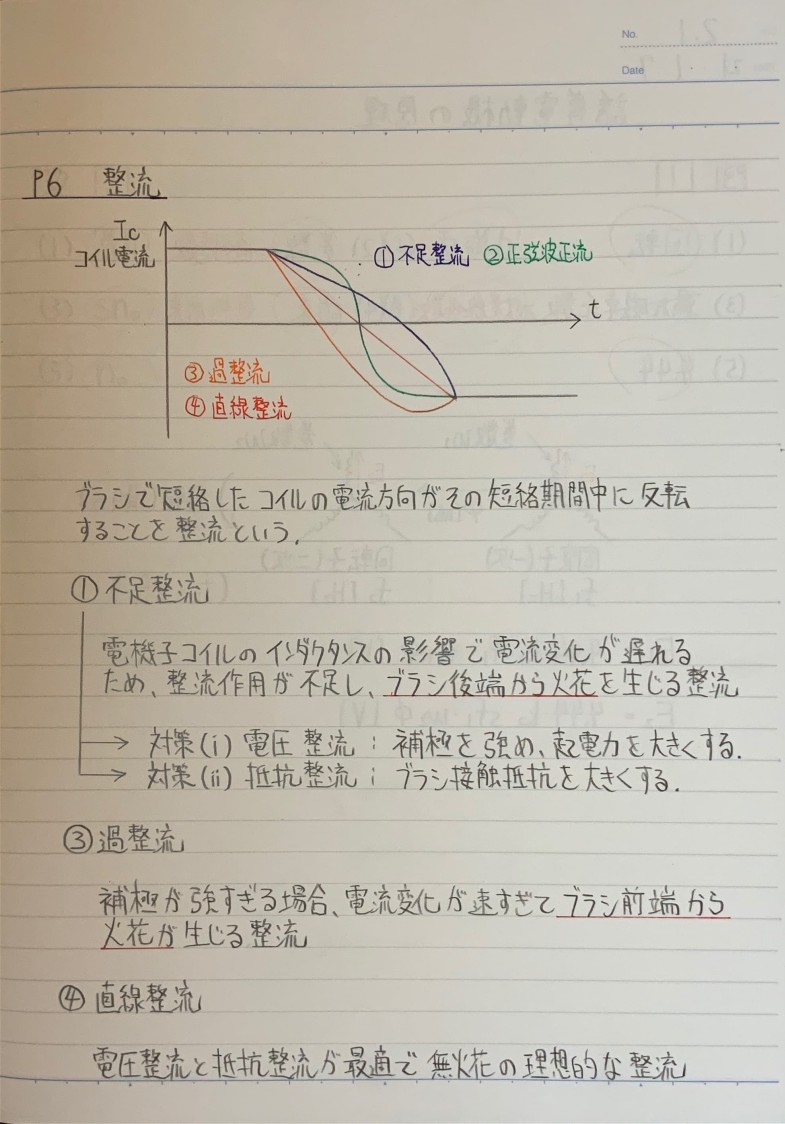 No.
Date
P6 整流
Ic
コイル電流
①不足整流 ②正弦波正流
t
③過整流
④直線整流
ブラシで短絡したコイルの電流方向がその短絡期間中に反転
することを整流という.
①不足整流
電機子コイルのインダクタンスの影響で電流変化が遅れる
ため、整流作用が不足し、ブラシ後端から火花を生じる整流
→ 対策(i) 電圧整流:補極を強め、起電力を大きくする.
→ 対策(ii) 抵抗整流:ブラシ接触抵抗を大きくする.
③過整流
補極が強すぎる場合、電流変化が速すぎてブラシ前端から
火花が生じる整流
④直線整流
電圧整流と抵抗整流が最適で無火花の理想的な整流